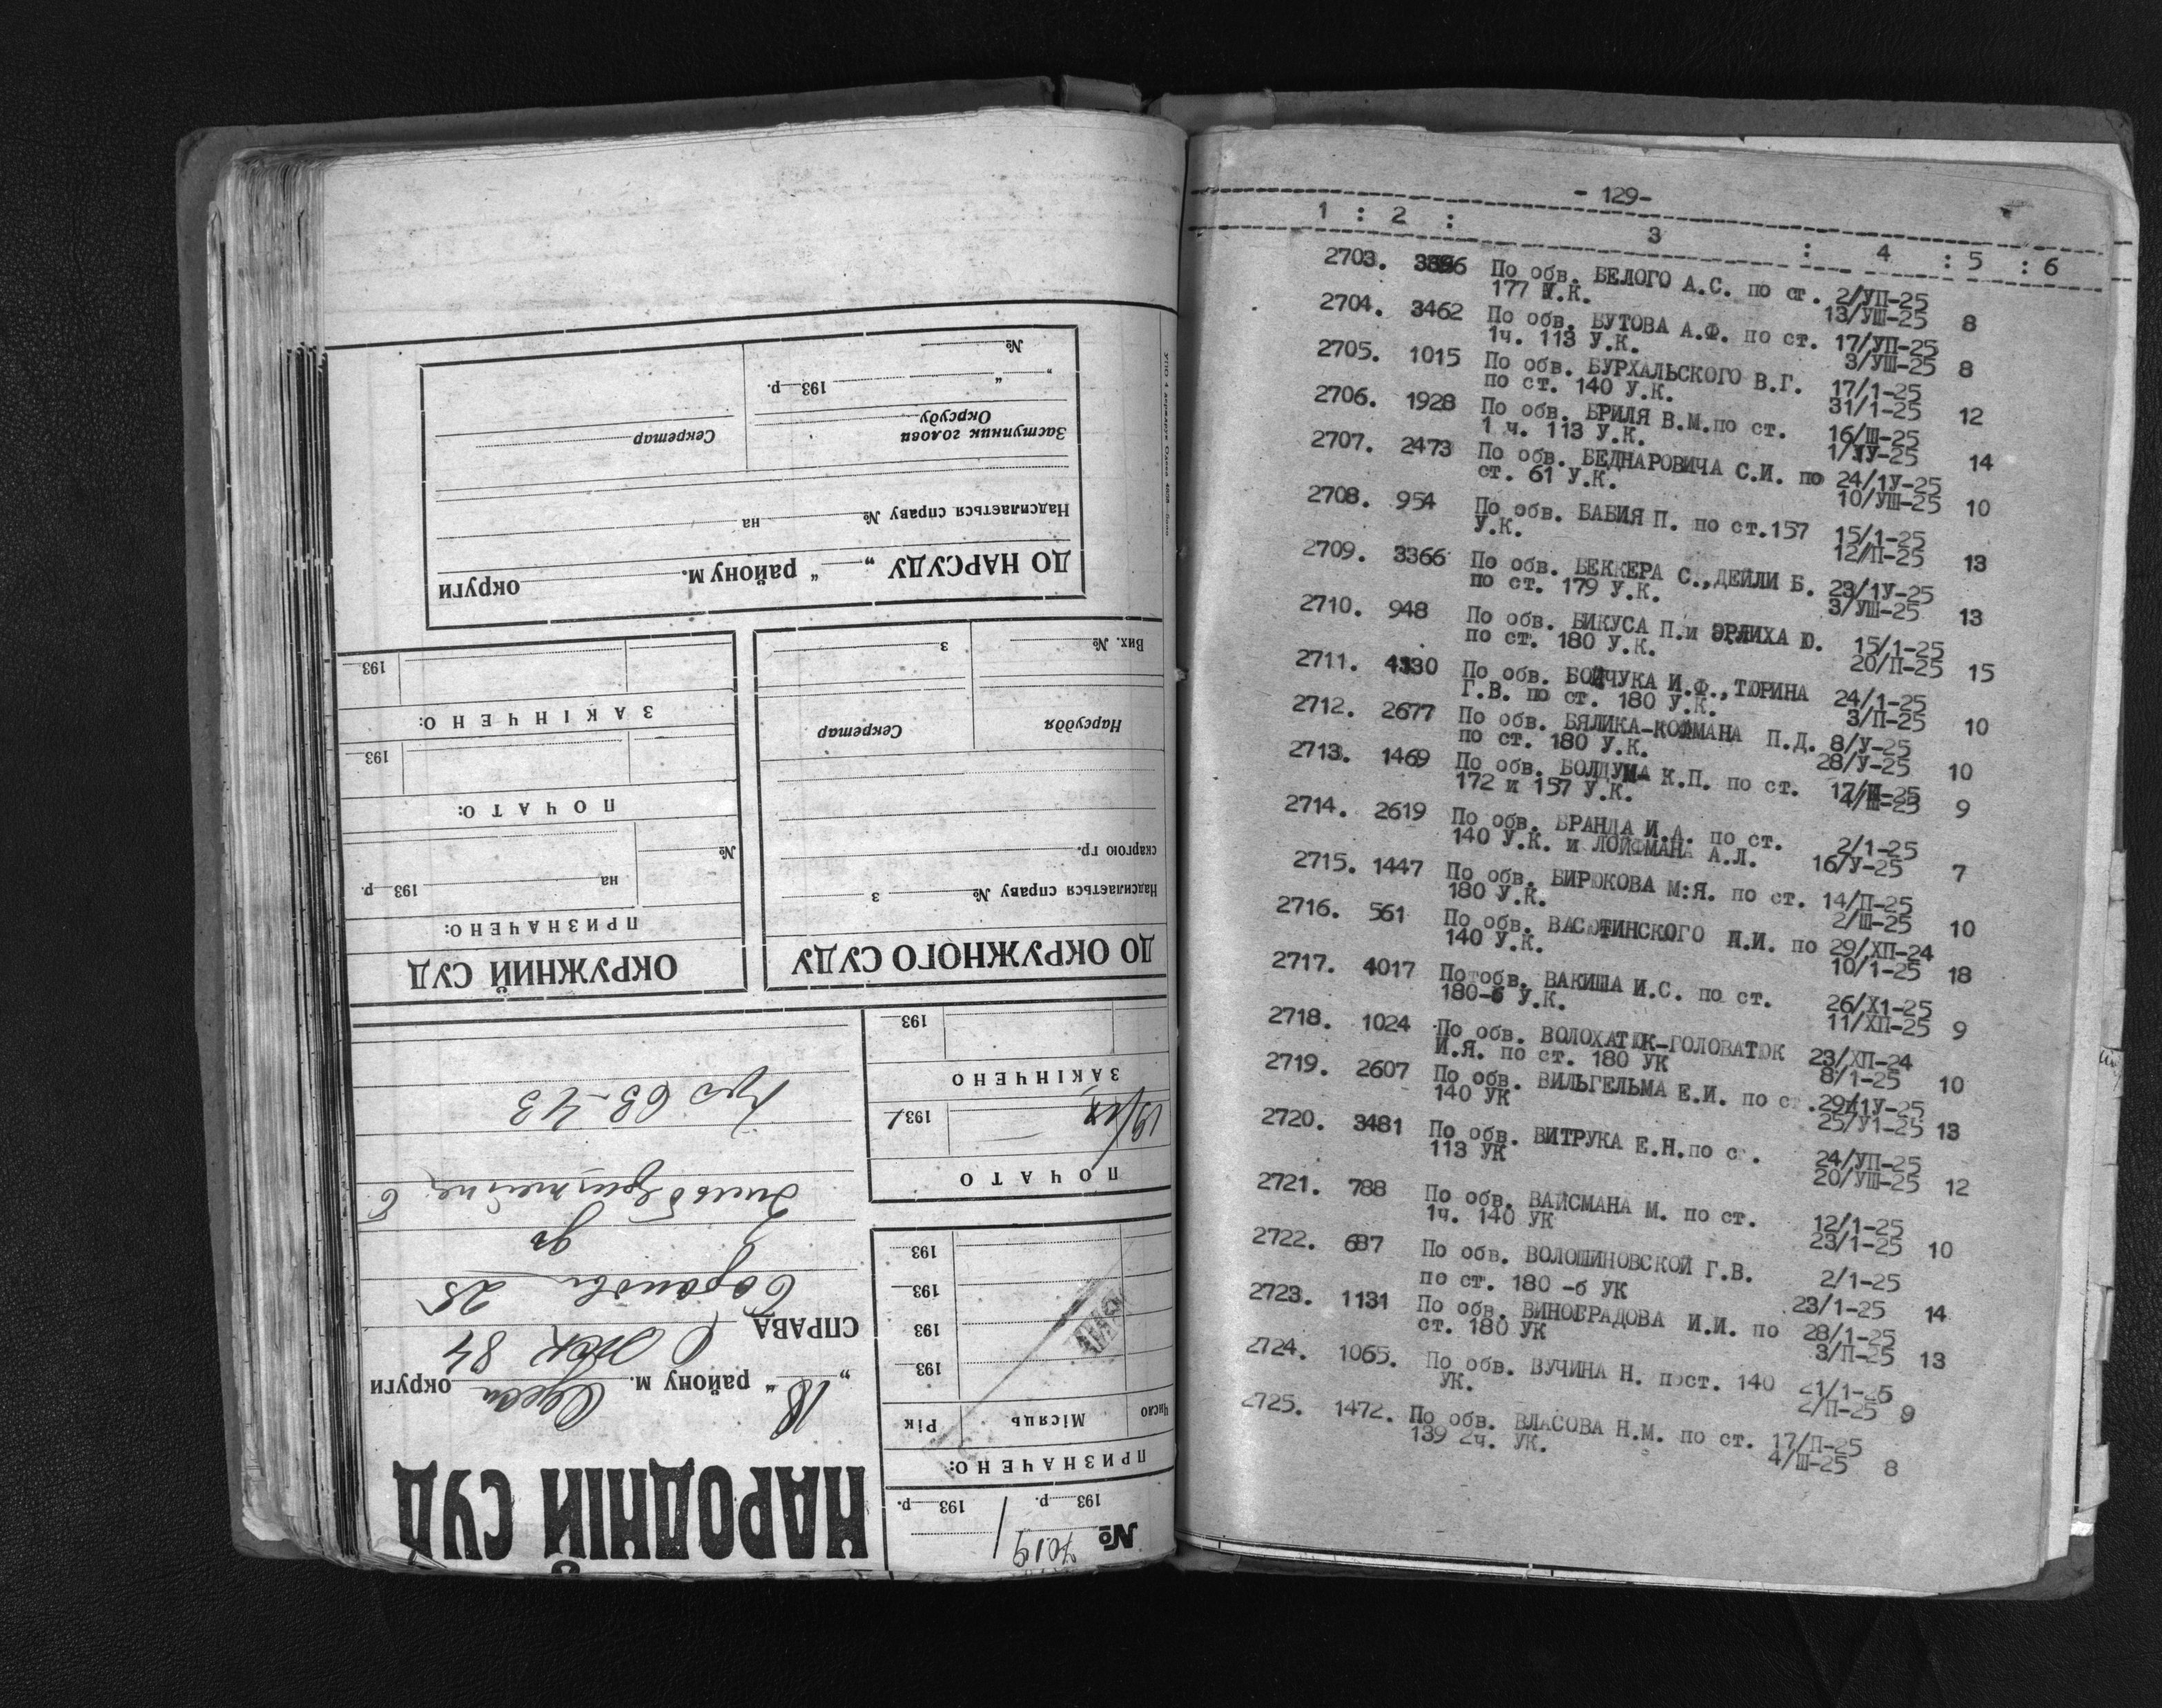 НАРОДНІЙ СУД
„18“ району м. Одеси округи
СПРАВА
№ 7019
193 р. 193 р.
ПРИЗНАЧЕНО:
Число Місяць Рік
193
193
193
193
ПОЧАТО
193
ЗАКІНЧЕНО
193
ОКРУЖНИЙ СУД
ПРИЗНАЧЕНО:
№ на 193 р
ПОЧАТО:
193
ЗАКІНЧЕНО:
193
ДО ОКРУЖНОГО СУДУ
Надсилається справу № з
скаргою гр.
Нарсуддя Секретар
Вих. № з
ДО НАРСУДУ „ “ району м. округи
Надсилається справу № на
Заступник голови Окрсуду Секретар
„ “ 193 р.
№
- 129-
1 : 2 : 3 : 4 : 5 : 6
2703. По обв. БЕЛОГО А.С. по ст. 2/УП-25
177 У.К. 13/УШ-25 8
2704. 3462 По обв. БУТОВА А.Ф. по ст. 17/УП-25
1ч. 113 У.К. 3/УШ-25 8
2705. 1015 По обв. БУРХАЛЬСКОГО В.Г. 17/1-25
по ст. 140 У.К. 31/1-25 12
2706. 1928 По обв. БРИЛЯ В.М.по ст. 16/Ш-25
1 ч. 113 У.К. 1/1У-25 14
2707. 2473 По обв. БЕДНАРОВИЧА С.И. по 24/1У-25
ст. 61 У.К. 10/УШ-25 10
2708. 954 По обв. БАБИЯ П. по ст.157 15/1-25
У.К. 12/П-25 13
2709. 3366 По обв. БЕККЕРА С.,ДЕЙЛИ Б. 23/1У-25
по ст. 179 У.К. 3/УШ-25 13
2710. 948 По обв. БИКУСА П.и ЭРЛИХА Ю. 15/1-25
по ст. 180 У.К. 20/П-25 15
2711. 4330 По обв. БОЙЧУКА И.Ф.,ТЮРИНА 24/1-25
Г.В. по ст. 180 У.К. 3/П-25 10
2712. 2677 По обв. БЯЛИКА-КОФМАНА П.Д. 8/У-25
по ст. 180 У.К. 28/У-25 10
2713. 1469 По обв. БОЛДУМА К.П. по ст. 17/П-25
172 и 157 У.К. 4/Ш-25 9
2714. 2619 По обв. БРАНДА И.А. по ст. 2/1-25
140 У.К. и ЛОЙФМАНА А.Л. 16/У-25 7
2715. 1447 По обв. БИРЮКОВА М:Я. по ст. 14/П-25
180 У.К. 2/Ш-25 10
2716. 561 По обв. ВАСЮТИНСКОГО И.И. по 29/ХП-24
140 У.К. 10/1-25 18
2717. 4017 По обв. ВАКИША И.С. по ст. 26/Х1-25
180-б У.К. 11/ХП-25 9
2718. 1024 По обв. ВОЛОХАТЮК-ГОЛОВАТЮК 23/ХП-24
И.Я. по ст. 180 УК 8/1-25 10
2719. 2607 По обв. ВИЛЬГЕЛЬМА Е.И. по ст.29/1У-25
140 УК 25/У1-25 13
2720. 3481 По обв. ВИТРУКА Е.Н.по ст. 24/УП-25
113 УК 20/УШ-25 12
2721. 788 По обв. ВАЙСМАНА М. по ст. 12/1-25
1ч. 140 УК 23/1-25 10
2722. 687 По обв. ВОЛОШИНОВСКОЙ Г.В. 2/1-25
по ст. 180 -б УК 23/1-25 14
2723. 1131 По обв. ВИНОГРАДОВА И.И. по 28/1-25
ст. 180 УК 3/П-25 13
2724. 1065. По обв. ВУЧИНА Н. пост. 140 21/1-25
УК. 2/П-25 9
2725. 1472. По обв. ВЛАСОВА Н.М. по ст. 17/П-25
139 2ч. УК. 4/Ш-25 8